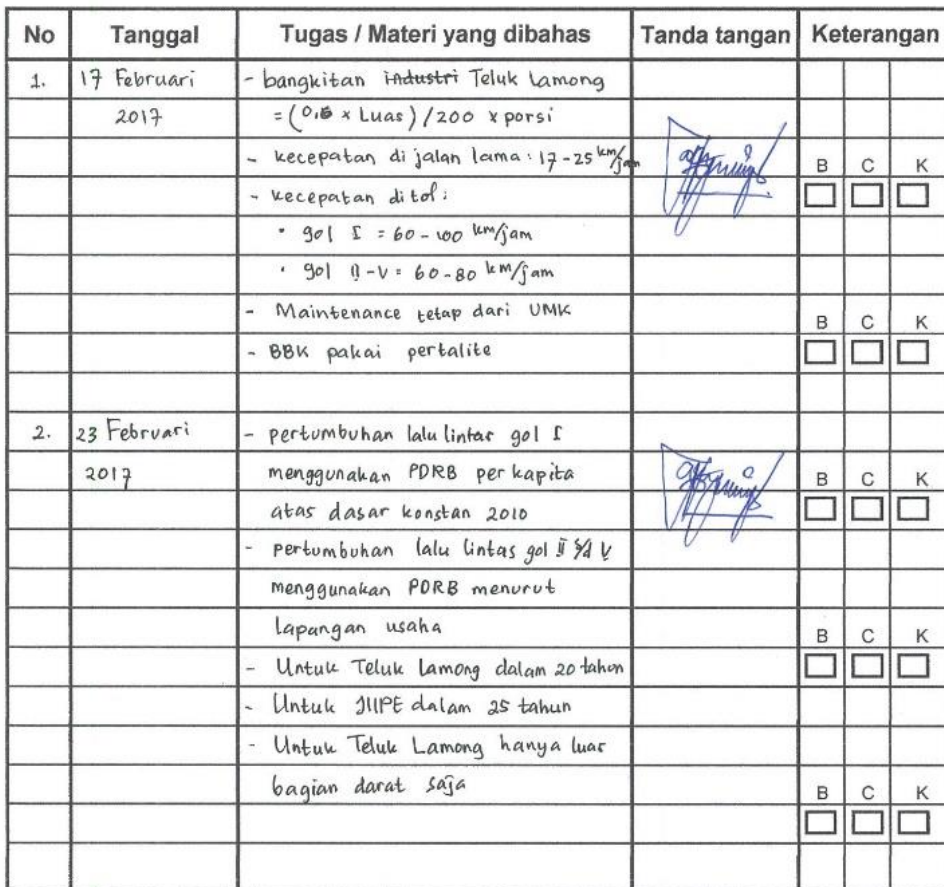 No Tanggal Tugas / Materi yang dibahas Tanda tangan Keterangan
1. 17 Februari - bangkitan industri Teluk Lamong
2017 = (0,6 x Luas) / 200 x porsi
- kecepatan di jalan lama : 17-25 km/jam
B C K
- kecepatan di tol :
• gol I = 60-100 km/jam
• gol II-V = 60-80 km/jam
- Maintenance tetap dari UMK
B C K
- BBK pakai pertalite
2. 23 Februari - pertumbuhan lalu lintas gol I
2017 menggunakan PDRB per kapita
B C K
atas dasar konstan 2010
- pertumbuhan lalu lintas gol II s/d V
menggunakan PDRB menurut
lapangan usaha
B C K
- Untuk Teluk Lamong dalam 20 tahun
- Untuk JIIPE dalam 25 tahun
- Untuk Teluk Lamong hanya luas
bagian darat saja
B C K